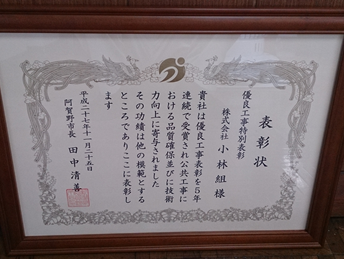 表彰状
優良工事特別表彰
株式会社 小林組 様
貴社は優良工事表彰を5年
連続で受賞され公共工事に
おける品質確保並びに技術
力向上に寄与されました
その功績は他の模範とする
ところでありここに表彰し
ます
平成二十七年十一月二十五日
阿賀野市長 田中清善